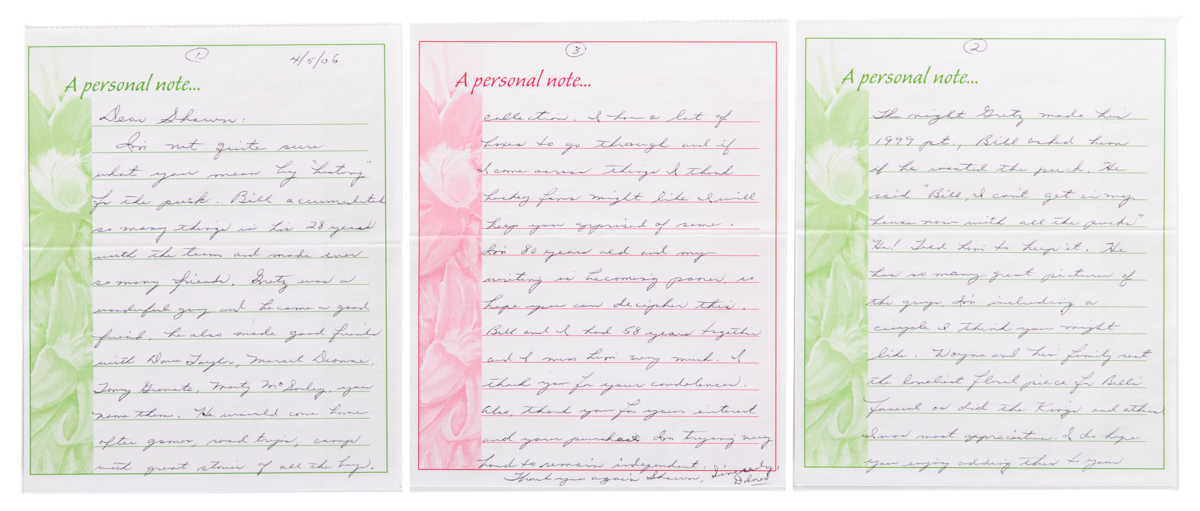 1
4/5/06
A personal note...
Dear Shawn:
I'm not quite sure
what you mean by "history"
for the puck. Bill accumulated
so many things in his 28 years
with the team and made ever
so many friends. Gretz was a
wonderful guy and became a good
friend. He also made good friends
with Dave Taylor, Marcel Dionne,
Tony Granato, Marty McSorley, you
name them. He would come home
after games, road trips, camp
with great stories of all the guys.
2
A personal note...
The night Gretz made his
1999 pt., Bill asked him
if he wanted the puck. He
said "Bill, I can't get in my
house now with all the pucks"
He! Told him to keep it. He
has so many great pictures of
the guys. I'm including a
couple I think you might
like. Wayne and his family sent
the loveliest floral piece for Bill's
funeral as did the Kings and others
I was most appreciative. I do hope
you enjoy adding this to your
3
A personal note...
collection. I have a lot of
boxes to go through and if
I come across things I think
hockey fans might like I will
keep you apprised of same.
I'm 80 years old and my
writing is becoming poorer, so
hope you can decipher this.
Bill and I had 58 years together
and I miss him very much. I
thank you for your condolences.
Also, thank you for your interest
and your purchase. I'm trying very
hard to remain independent.
Thank you again Shawn, Sincerely,